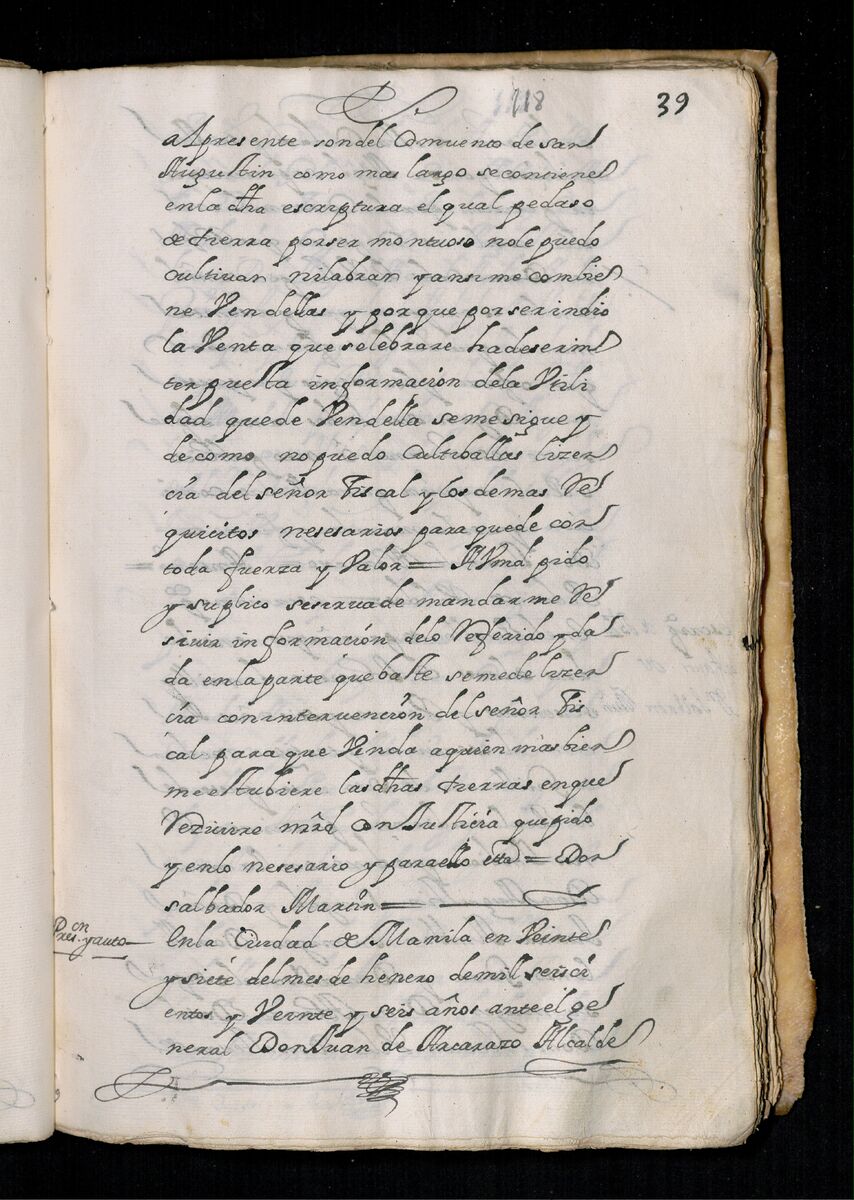 118
39
alpresente son del Comuento de san
Augustin como mas largo se contiene
en la dha escriptura el qual pedaso
de tierra por ser montuoso nole puedo
cultiuar nilabrar y ansi me combie
ne Vendellas y por que por ser indio
la Venta que selebrare hadeserin
terpuesta informacion dela Vtili
dad quede Vendella seme sigue y
de como no puedo Cultiballas lizen
cia del señor Fiscal y los demas Re
quicitos nesesarios para quede con
toda fuerza y Valor = A Vmd pido
y suplico se sirua de mandar me Re
siuir informacion delo Referido y da
da en la parte que baste se me de lizen
cia con interuencion del señor Fis
cal para que Venda a quien mas bien
me estubiere las dhas tierras en que
Reziuire mrd con Justicia que pido
y en lo nesesario y para ello etta = Don
salbador Martin =
Pres.on y auto
En la Ciudad de Manila en Veinte
y siete del mes de henero de mill seisci
entos y Veinte y seis años ante el ge
neral Don Juan de Arcarazo Alcalde